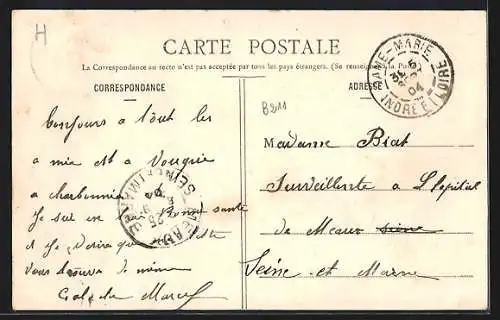 H
CARTE POSTALE
La Correspondance au recto n'est pas acceptée par tous les pays étrangers. (Se renseigner à la Poste)
CORRESPONDANCE
ADRESSE
B211
DAME-MARIE
04
INDRE ET LOIRE
Bonjours a tout les
a mia et a Vouquie
a charbonnie
Je suis en bonne sante
et je desire que
vous de meme
Marcel
SEINE-ET-MARNE
25
Madame Biat
Surveillante a L hopital
de Meaux seine
Seine et Marne